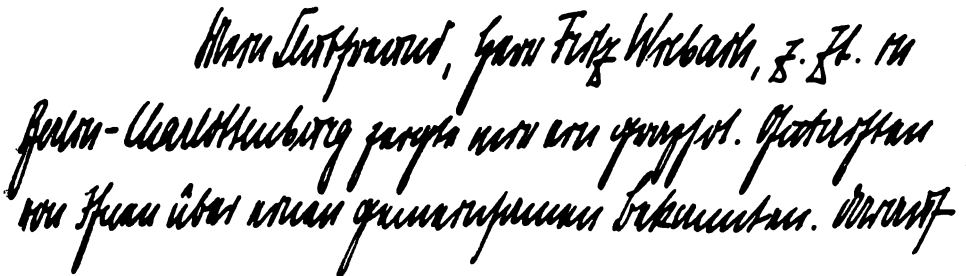 Mein Clubfreund, Herr Fritz Wiebach, z. Zt. in
Berlin-Charlottenburg zeigte mir ein graphol. Gutachten
von Ihnen über einen gemeinsamen Bekannten. Darauf